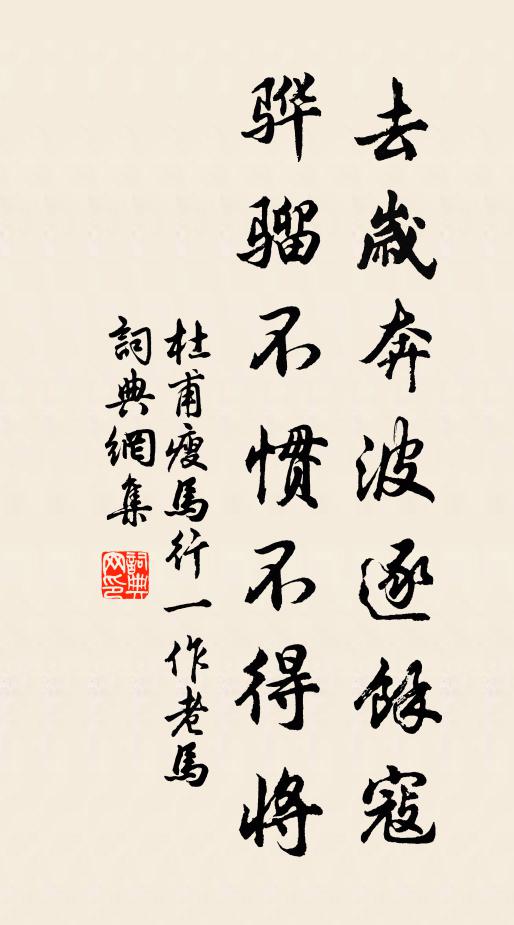 去歲奔波逐餘寇
骅骝不慣不得將
杜甫瘦馬行一作老馬
詞典網集
詞典網印